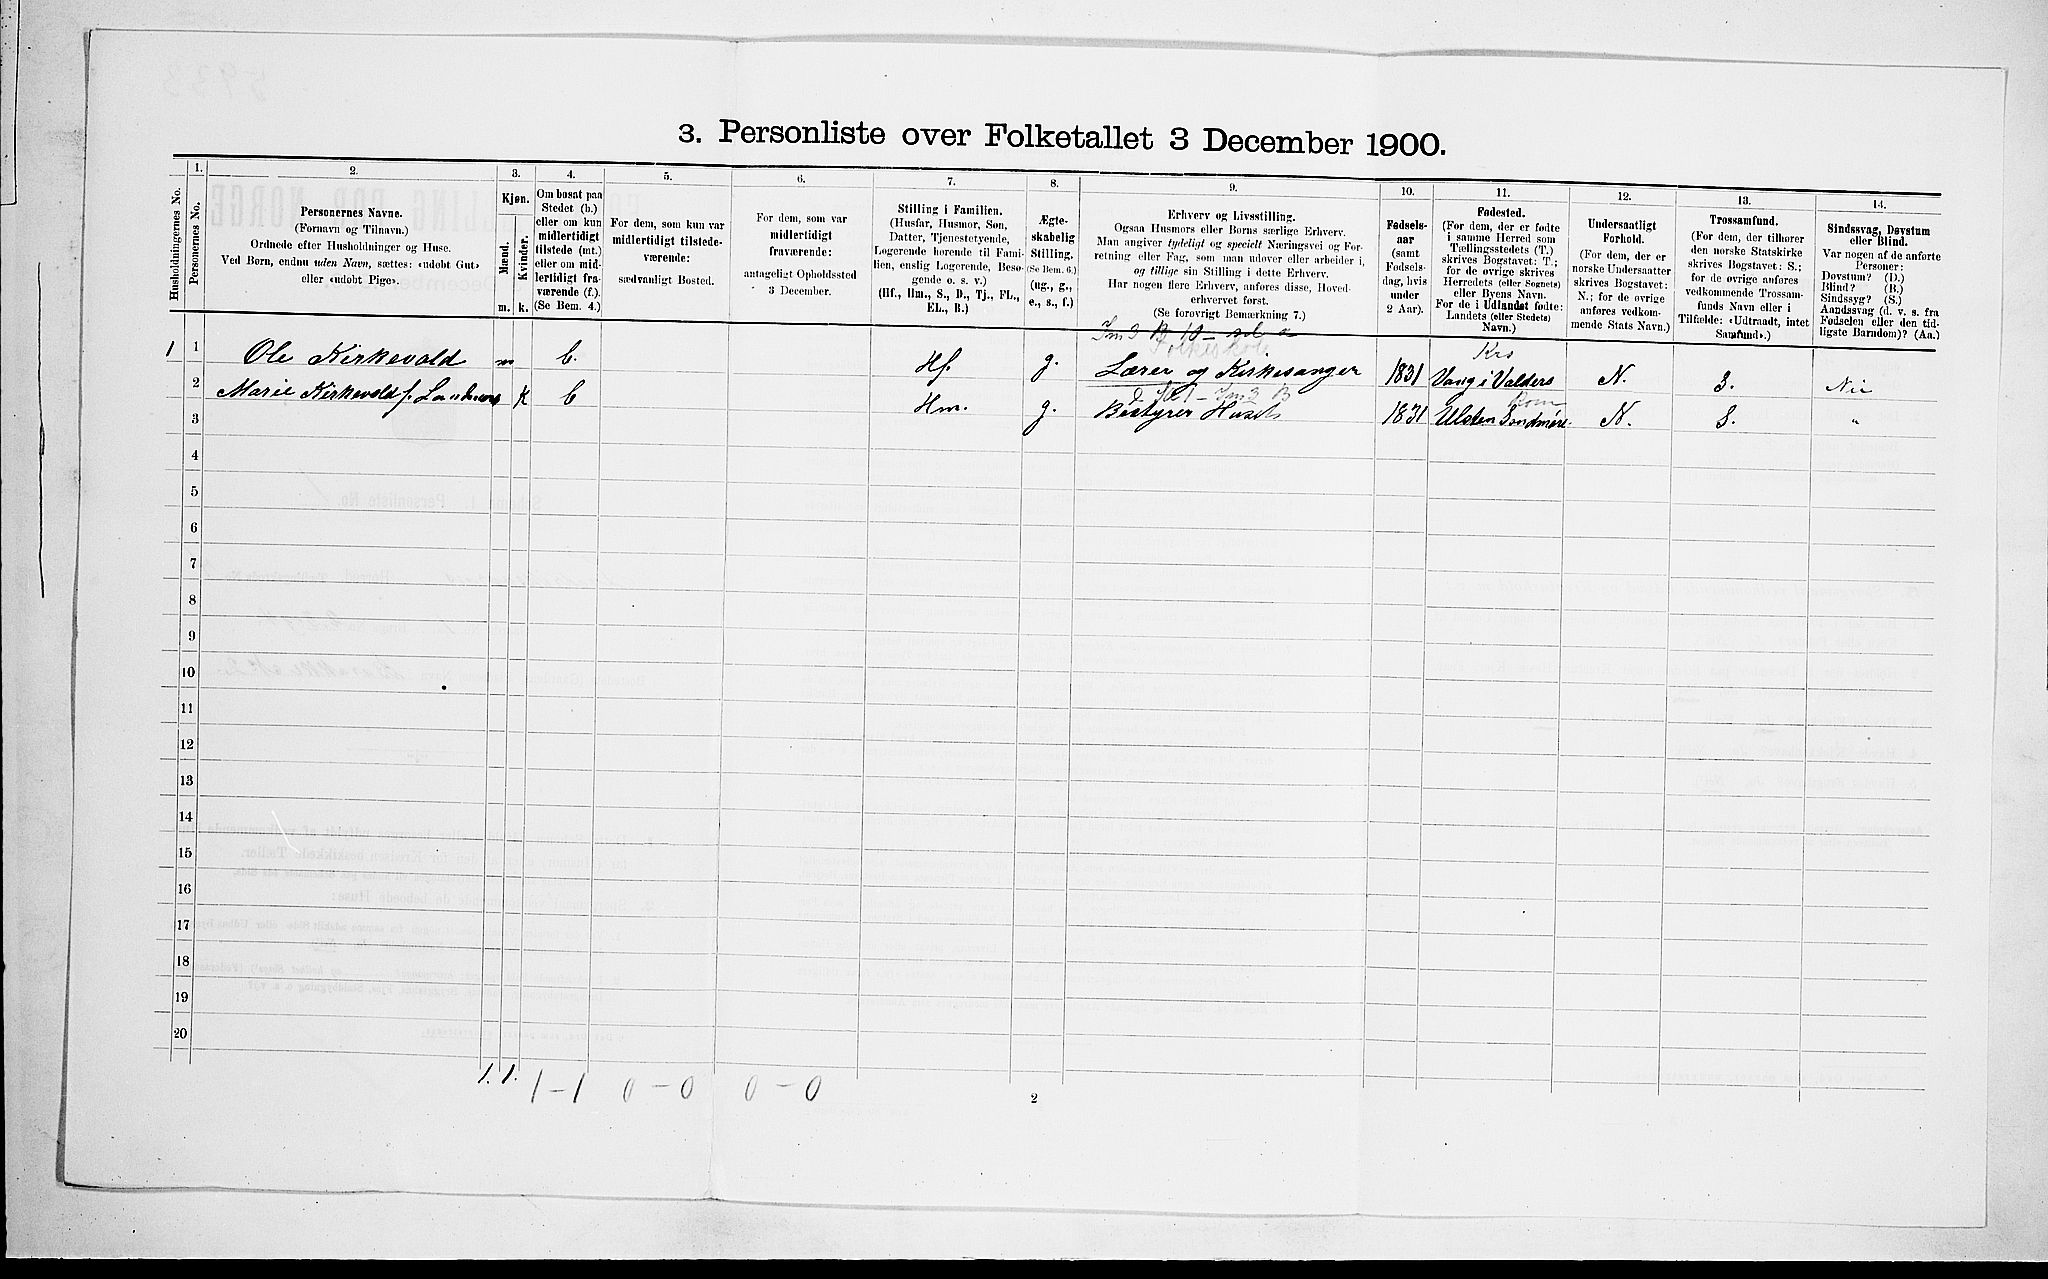 3. Personliste over Folketallet 3 December 1900.
Husholdningernes No.
1.
Personernes No.
2.
Personernes Navne.
(Fornavn og Tilnavn.)
Ordnede efter Husholdninger og Huse.
Ved Børn, endnu uden Navn, sættes: «udøbt Gut»
eller «udøbt Pige».
3.
Kjøn.
Mænd.
Kvinder.
m. k.
4.
Om bosat paa
Stedet (b.)
eller om kun
midlertidigt
tilstede (mt.)
eller om mid-
lertidigt fra-
værende (f.).
(Se Bem. 4.)
5.
For dem, som kun var
midlertidigt tilstede-
værende:
sædvanligt Bosted.
6.
For dem, som var
midlertidigt
fraværende:
antageligt Opholdssted
3 December.
7.
Stilling i Familien.
(Husfar, Husmor, Søn,
Datter, Tjenestetyende,
Logerende hørende til Fami-
lien, enslig Logerende, Besø-
gende o. s. v.)
(Hf., Hm., S., D., Tj., FL.,
EL., B.)
8.
Ægte-
skabelig
Stilling.
(Se Bem. 6.)
(ug., g.,
e., s., f.)
9.
Erhverv og Livsstilling.
Ogsaa Husmors eller Børns særlige Erhverv.
Man angiver tydeligt og specielt Næringsvei og For-
retning eller Fag, som man udøver eller arbeider i,
og tillige sin Stilling i dette Erhverv.
Har nogen flere Erhverv, anføres disse, Hoved-
erhvervet først.
(Se forøvrigt Bemærkning 7.)
10.
Fødsels-
aar
(samt
Fødsels-
dag, hvis
under
2 Aar).
11.
Fødested.
(For dem, der er fødte
i samme Herred som
Tællingsstedets (T.)
skrives Bogstavet: T.;
for de øvrige skrives
Herredets (eller Sognets)
eller Byens Navn.
For de i Udlandet fødte:
Landets (eller Stedets)
Navn.)
12.
Undersaatligt
Forhold.
(For dem, der er
norske Undersaatter
skrives Bogstavet:
N.; for de øvrige
anføres vedkom-
mende Stats Navn.)
13.
Trossamfund.
(For dem, der tilhører
den norske Statskirke
skrives Bogstavet: S.;
for de øvrige anføres
vedkommende Trossam-
funds Navn eller i
Tilfælde: «Udtraadt, intet
Samfund».)
14.
Sindssvag, Døvstum
eller Blind.
Var nogen af de anførte
Personer:
Døvstum? (D.)
Blind? (B.)
Sindssyg? (S.)
Aandssvag (d. v. s. fra
Fødselen eller den tid-
ligste Barndom)? (Aa.)
Folkeskole
Krs
1 1 Ole Kirkevold m b. Hf. g. Lærer og Kirkesanger 1831 Vang i Valders N. S. Nei
Rom
2 Marie Kirkevold f. k b Hm. g. Bestyrer Huset 1831 Ulsten Søndmøre. N. S. "
3
4
5
6
7
8
9
10
11
12
13
14
15
16
17
18
19
20
1. 1. 1 – 1 0 – 0 0 – 0
2